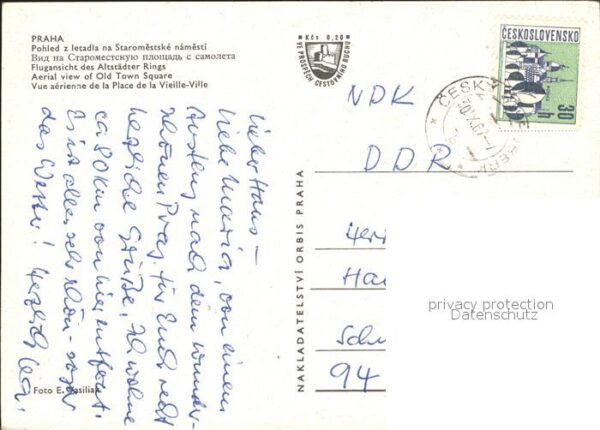 PRAHA
Pohled z letadla na Staroměstské náměstí
Вид на Староместскую площадь с самолета
Flugansicht des Altstädter Rings
Aerial view of Old Town Square
Vue aérienne de la Place de la Vieille-Ville
Lieber Hans –
liebe Maria, von einem
Ausflug nach dem wunder-
schönen Prag für Euch recht
herzliche Grüße. Ich wohne
ca 80 km von hier entfernt.
Es ist alles sehr schön – sogar
das Wetter! Herzlichst
Foto E. Vasiliak
Kčs 0,20
VE PROSPĚCH CESTOVNÍHO RUCHU
NAKLADATELSTVÍ ORBIS PRAHA
ČESKOSLOVENSKO
30 h
ČESKÁ
NDK
DDR
Herr
Ha
Sch
94
privacy protection
Datenschutz